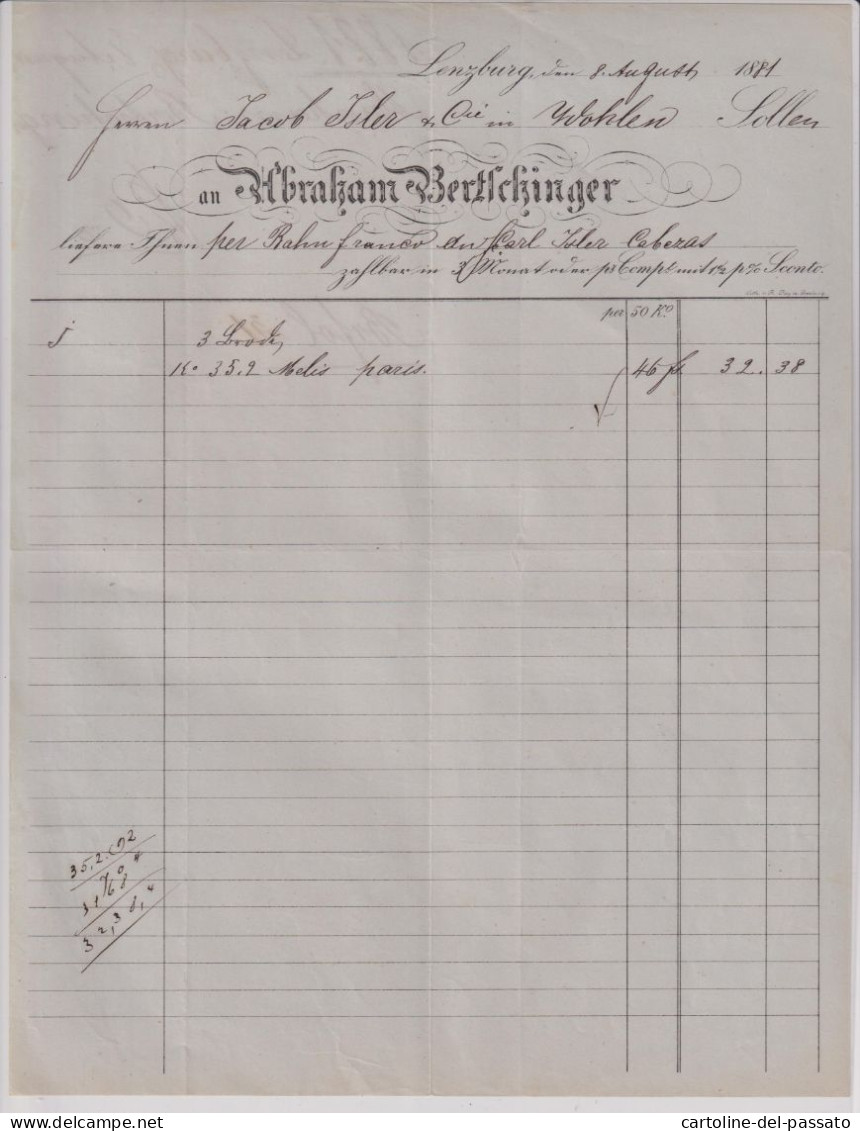 Lenzburg, den 8. August 1881
Herren Jacob Isler & Cie in Wohlen Sollen
an Abraham Bertschinger
liefere Ihnen per Bahn franco an Carl Isler Cabezas
zahlbar in 3 Monat oder pr Compt mit 1½ p% Sconto.
per 50 Ko
3 Brode,
Ko 35.2 Melis paris. 46 fs 32. 38
35,2. 92
704
3168
32,38,4
cartoline-del-passato